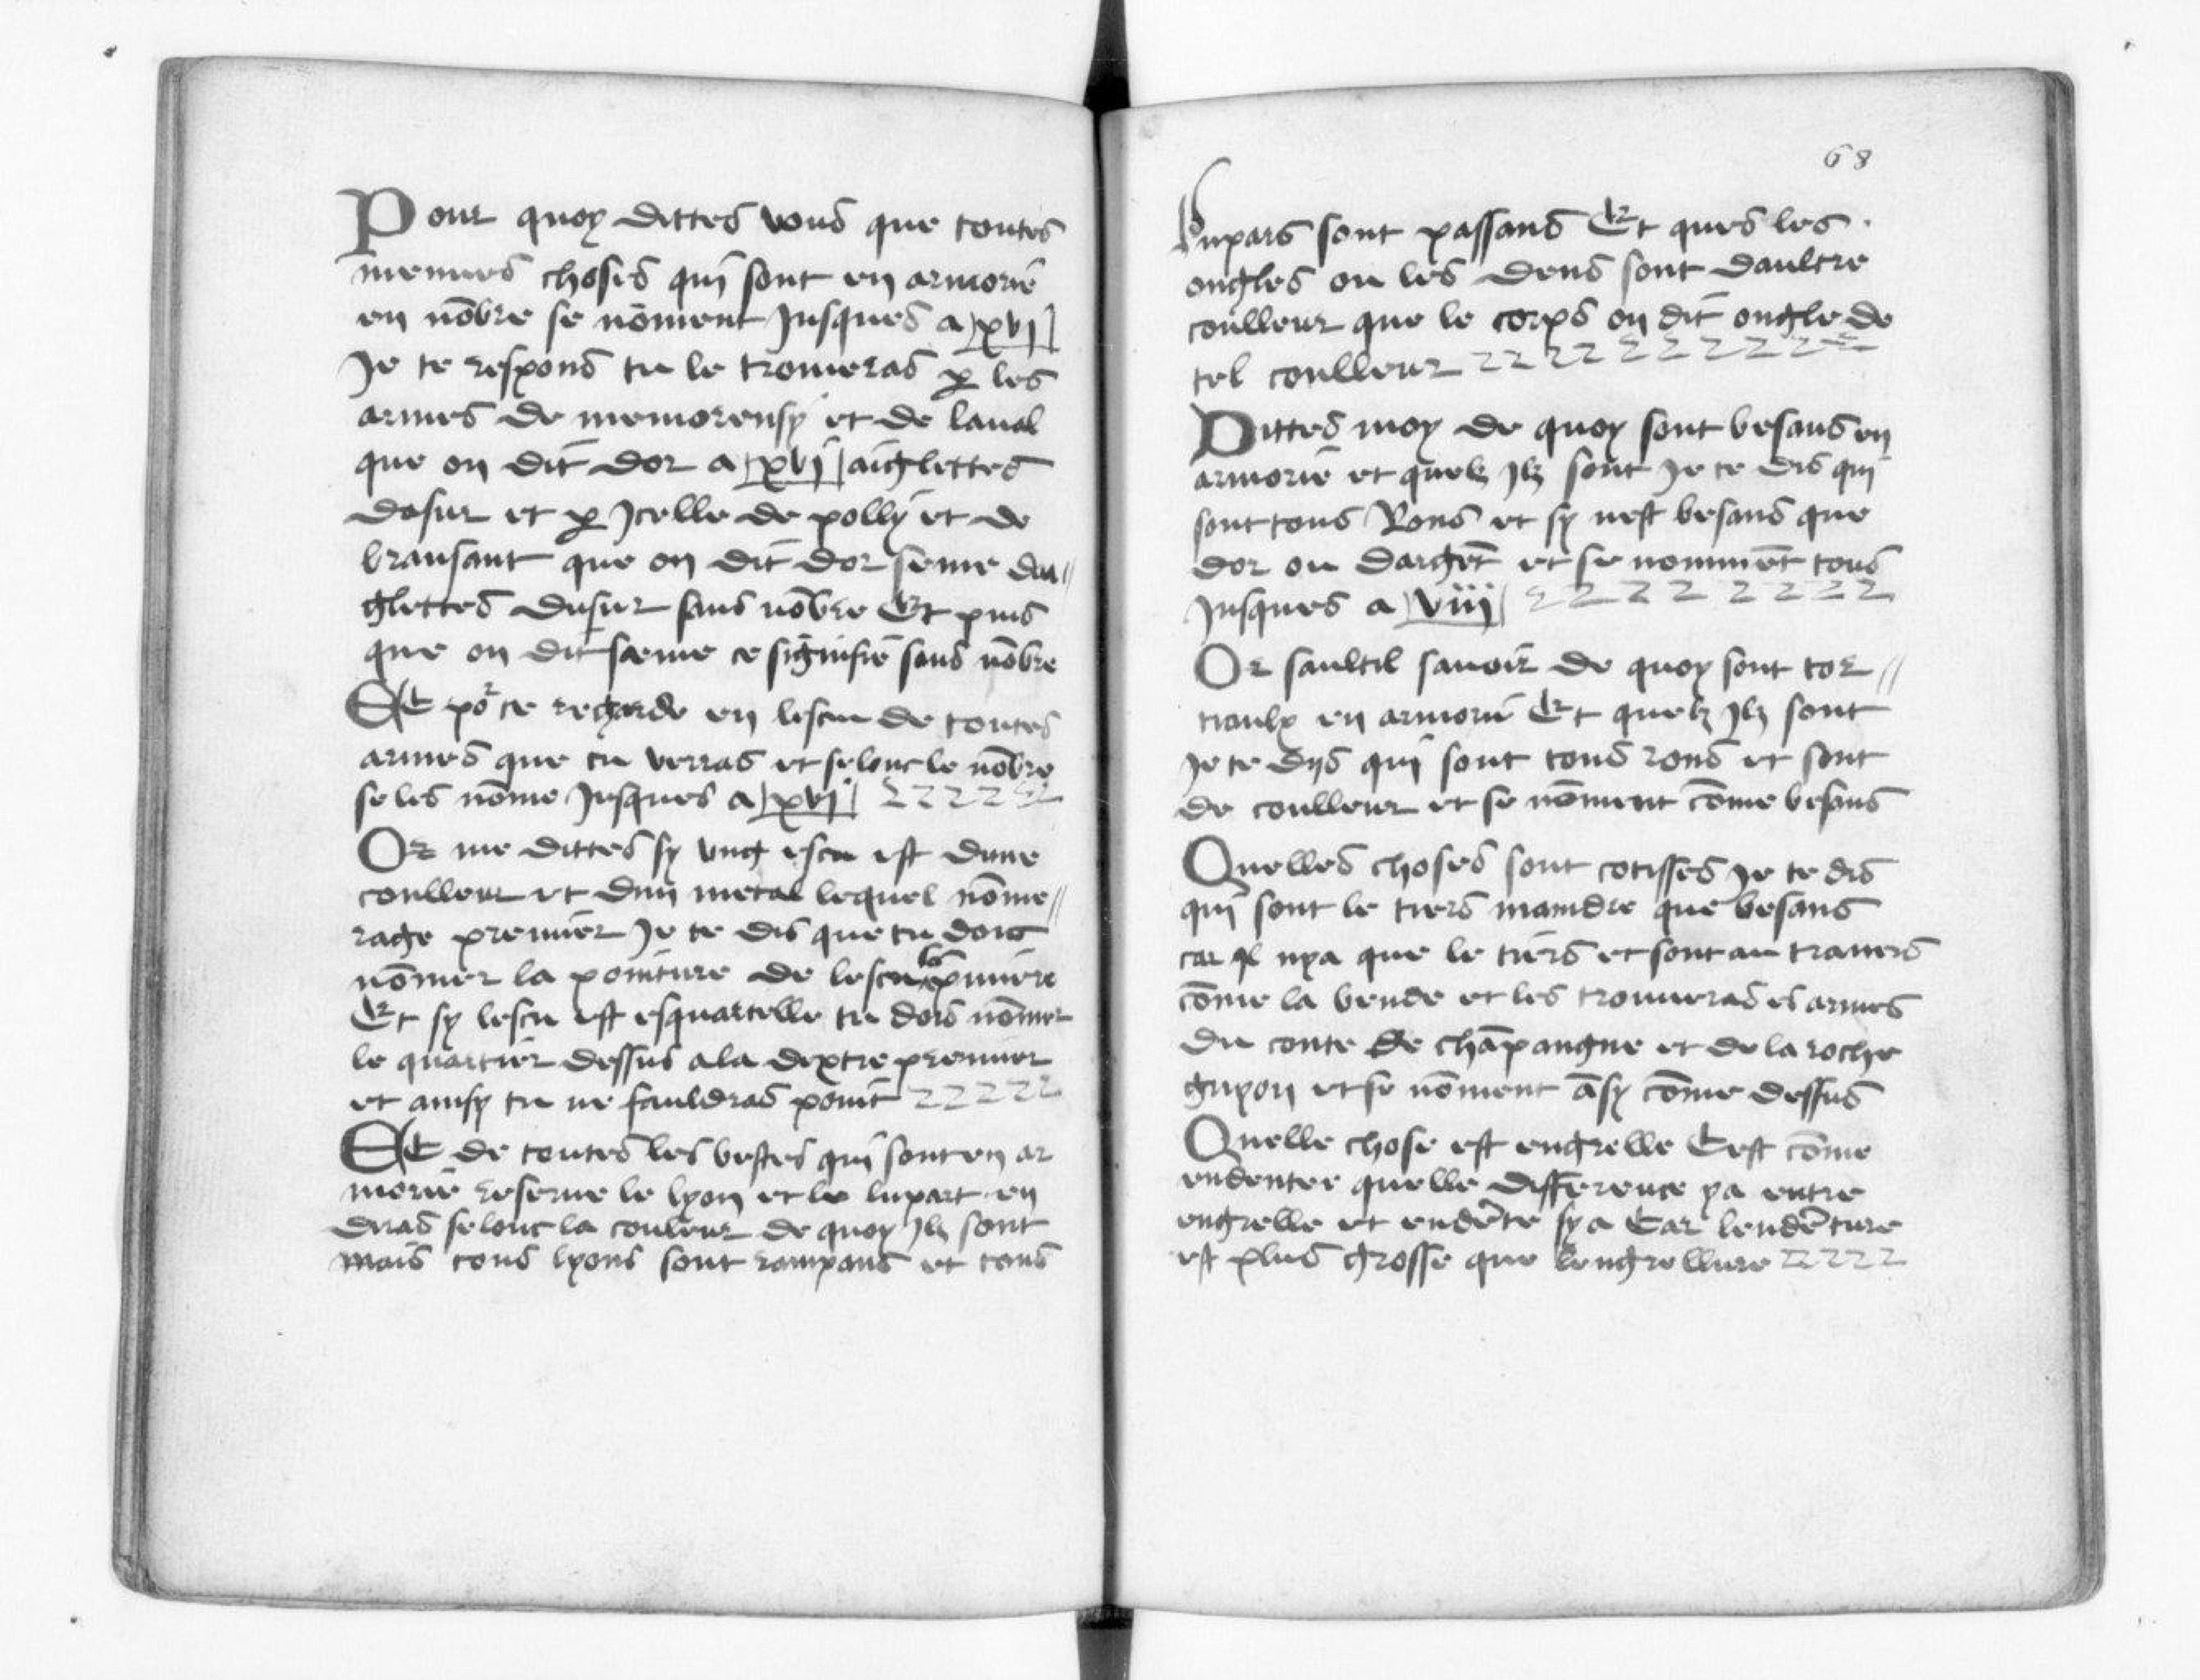 Pour quoy dittes vous que toutes
menues choses qui sont en armorie
en nōbre se nōment Jusques a xvj
Je te respons tu le trouueras p les
armes de memorensy et de laual
que on dit dor a xvj aiglettes
dasur et p Jcelle de polly et de
bransant que on dit dor seme dai//
glettes dasur sans nōbre Et puis
que on dit seme ce signifie sans nōbre
Et por ce regarde en lescu de toutes
armes que tu verras et selonc le nōbre
se les nōme Jusques a xvj
Or me dittes sy vng escu est dune
coulleur et dun metal lequel nōme//
rage premier Je te dis que tu dois
nōmer la pointure de lescu la pmiere
Et sy lescu est esquartelle tu dois nōmer
le quartier dessus a la dextre premier
et ainsy tu ne fauldras point
Et de toutes les bestes qui sont en ar
morie reserue le lyon et le lupart en
diras selonc la couleur de quoy Jlz sont
mais tous lyons sont rampans et tous
68
lupars sont passans Et ques les
ongles ou les dens sont daultre
coulleur que le corps on dit ongle de
tel coulleur
Dittes moy de quoy sont besans en
armorie et quelz Jlz sont Je te dis qui
sont tous Rons et sy nest besans que
dor ou dargēt et se nommēt tous
Jusques a viij
Or faultil sauoir de quoy sont tor//
tiaulx en armorie Et quelz Jlz sont
Je te dys qui sont tous rons et sont
de coulleur et se nōment cōme besans
Quelles choses sont cotisses Je te dis
qui sont le tiers maindre que besans
car ql nya que le tiers et sont au trauers
cōme la bende et les trouueras es armes
du conte de chāpangne et de la roche
guyon et se nōment āsy cōme dessus
Quelle chose est engrelle Cest cōme
endentee quelle difference ya entre
engrelle et endēte sy a Car lendēture
est plus grosse que lengrellure